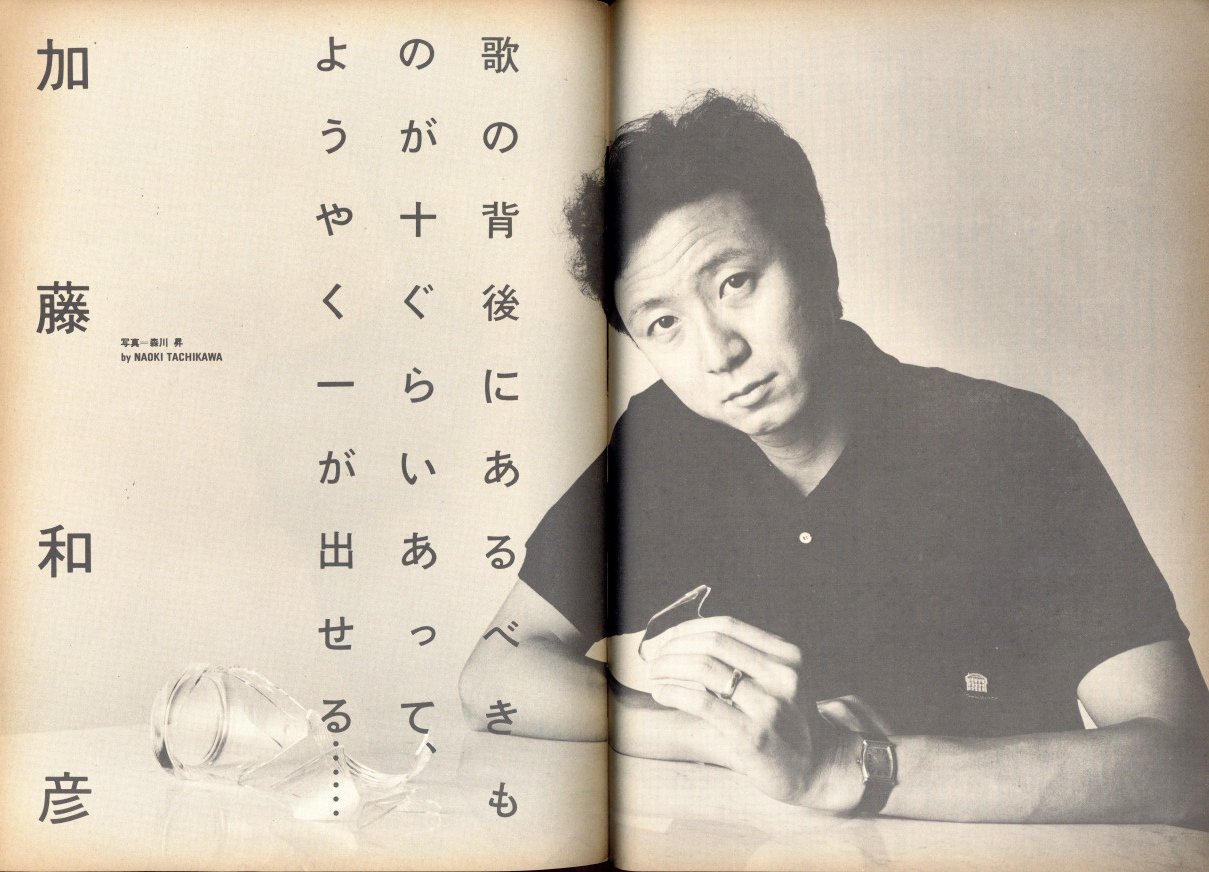 歌の背後にあるべきも
のが十ぐらいあって、
ようやく一が出せる………
写真＝森川 昇
by NAOKI TACHIKAWA
加藤和彦